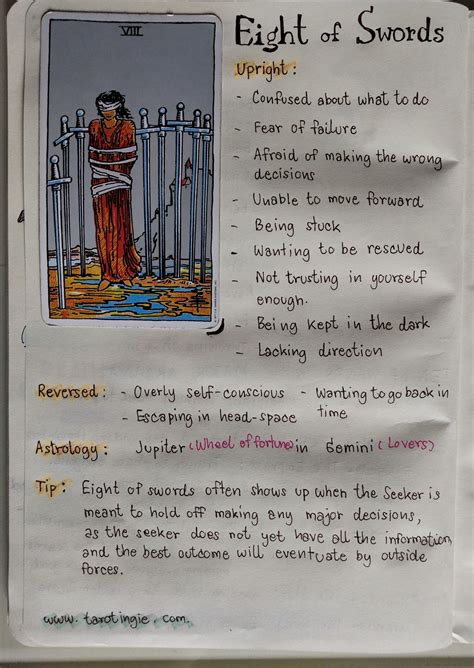 VIII
Eight of Swords
Upright :
- Confused about what to do
- Fear of failure
- Afraid of making the wrong
decisions
- Unable to move forward
- Being stuck
- Wanting to be rescued
- Not trusting in yourself
enough.
- Being kept in the dark
- Lacking direction
Reversed : - Overly self-conscious - Wanting to go back in
- Escaping in head-space time
Astrology : Jupiter (Wheel of fortune) in Gemini (Lovers)
Tip : Eight of swords often shows up when the Seeker is
meant to hold off making any major decisions,
as the seeker does not yet have all the information
and the best outcome will eventuate by outside
forces.
www. tarotingie . com.